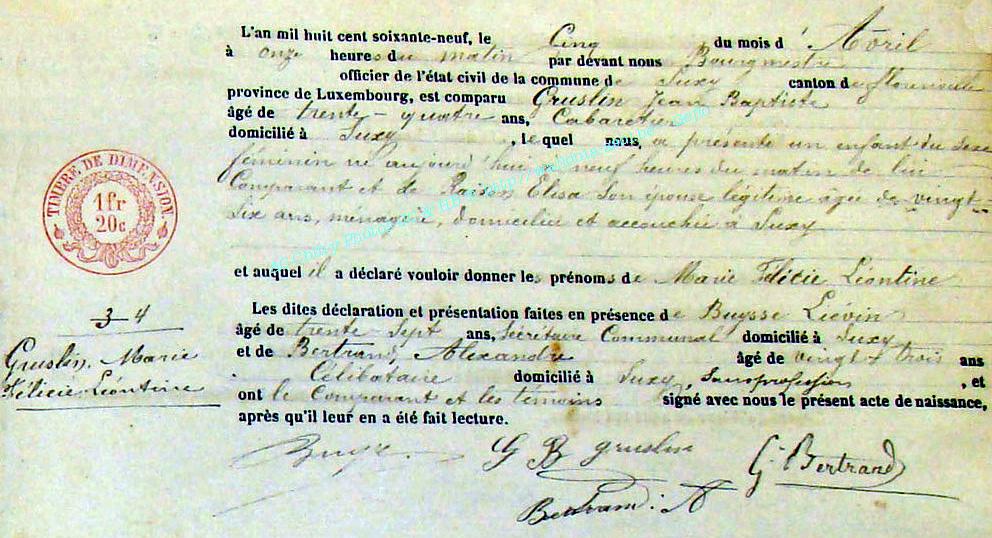 L'an mil huit cent soixante-neuf, le Cinq du mois d' Avril
à onze heures du matin par devant nous Bourgmestre
officier de l'état civil de la commune de Suxy canton de florenville
province de Luxembourg, est comparu Gruslin Jean Baptiste
âgé de trente-quatre ans, Cabaretier
domicilié à Suxy, lequel nous a présenté un enfant du sexe
féminin né aujourd'hui à neuf heures du matin de lui
Comparant et de Raison Elisa son épouse légitime âgée de vingt-
six ans, ménagère, domiciliée et accouchée à Suxy
et auquel il a déclaré vouloir donner les prénoms de Marie Félicie Léontine
Les dites déclaration et présentation faites en présence de Buysse Liévin
âgé de trente-sept ans, Secrétaire Communal domicilié à Suxy
et de Bertrand Alexandre âgé de vingt trois ans
Célibataire domicilié à Suxy, sans profession, et
ont le Comparant et les témoins signé avec nous le présent acte de naissance,
après qu'il leur en a été fait lecture.
TIMBRE DE DIMENSION
1 fr
20c
34
Gruslin, Marie
Félicie Léontine
Buysse
G B gruslin
G. Bertrand
Bertrand. A